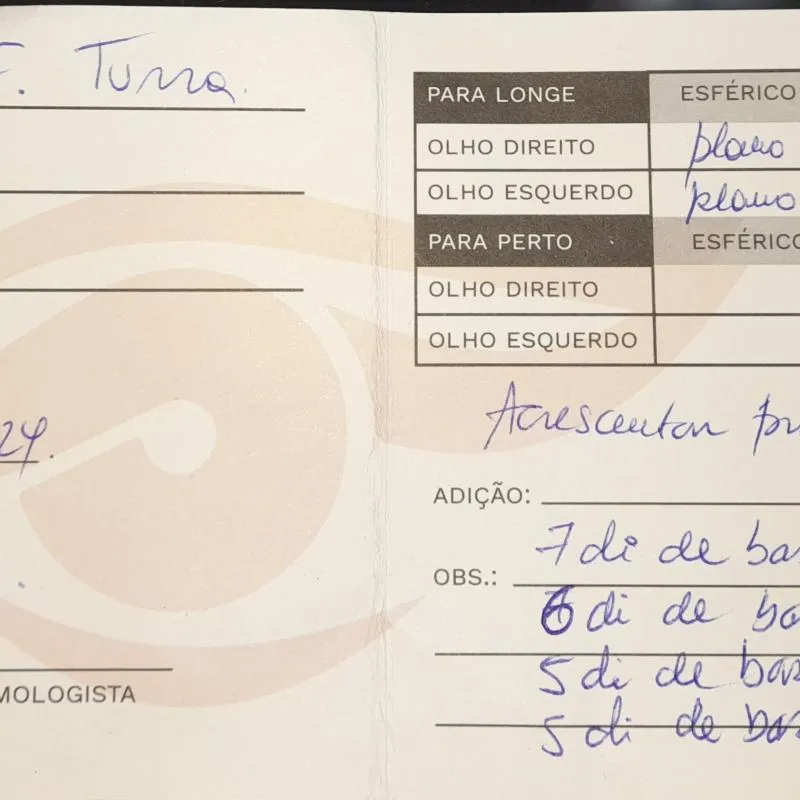 F. Turra.
24.
MOLOGISTA
PARA LONGE ESFÉRICO
OLHO DIREITO plano
OLHO ESQUERDO plano
PARA PERTO ESFÉRICO
OLHO DIREITO
OLHO ESQUERDO
Acrescentar pr
ADIÇÃO:
7 di de bas
OBS.:
6 di de ba
5 di de bas
5 di de bas